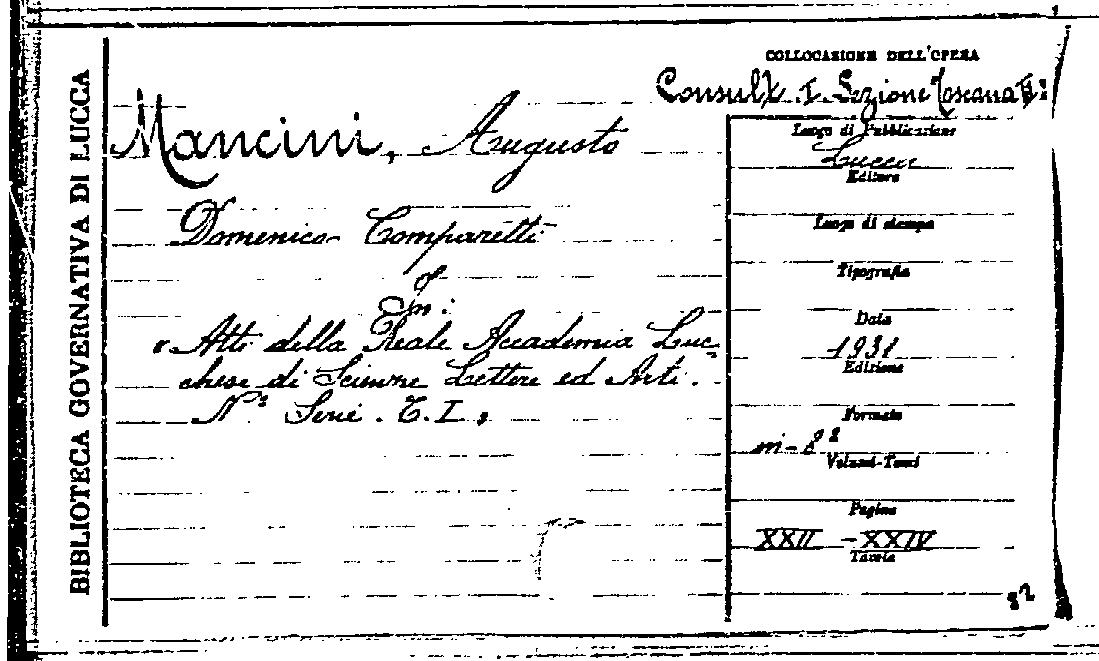 BIBLIOTECA GOVERNATIVA DI LUCCA
COLLOCAZIONE DELL'OPERA
Consultz. I. Sezione Toscana
Mancini, Augusto
Domenico Comparetti
In:
"Atti della Reale Accademia Luc-
chese di Scienze Lettere ed Arti.
Nª Serie. T. I,
Luogo di Pubblicazione
Lucca
Editore
Luogo di stampa
Tipografia
Data
1931
Edizione
Formato
in-8º
Volumi-Tomi
Pagine
XXII - XXIV
Tavole